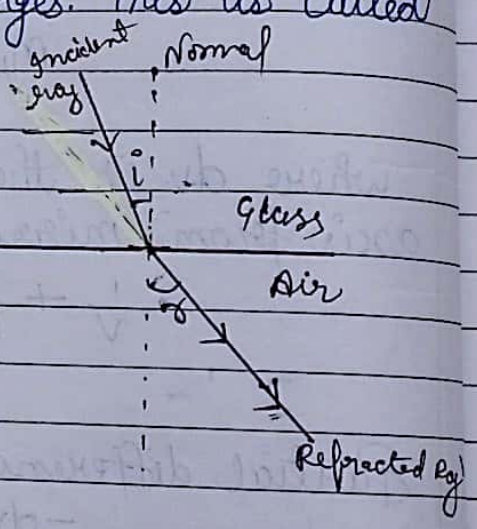 ges. This is called
Incident
ray
Normal
i
Glass
Air
r
Refracted Ray
where du
+